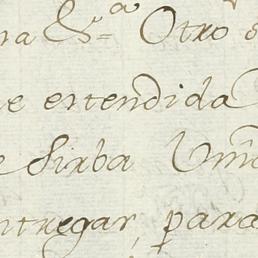 ra &ª Otro
e estendida
e sirba Vm
ntregar, para